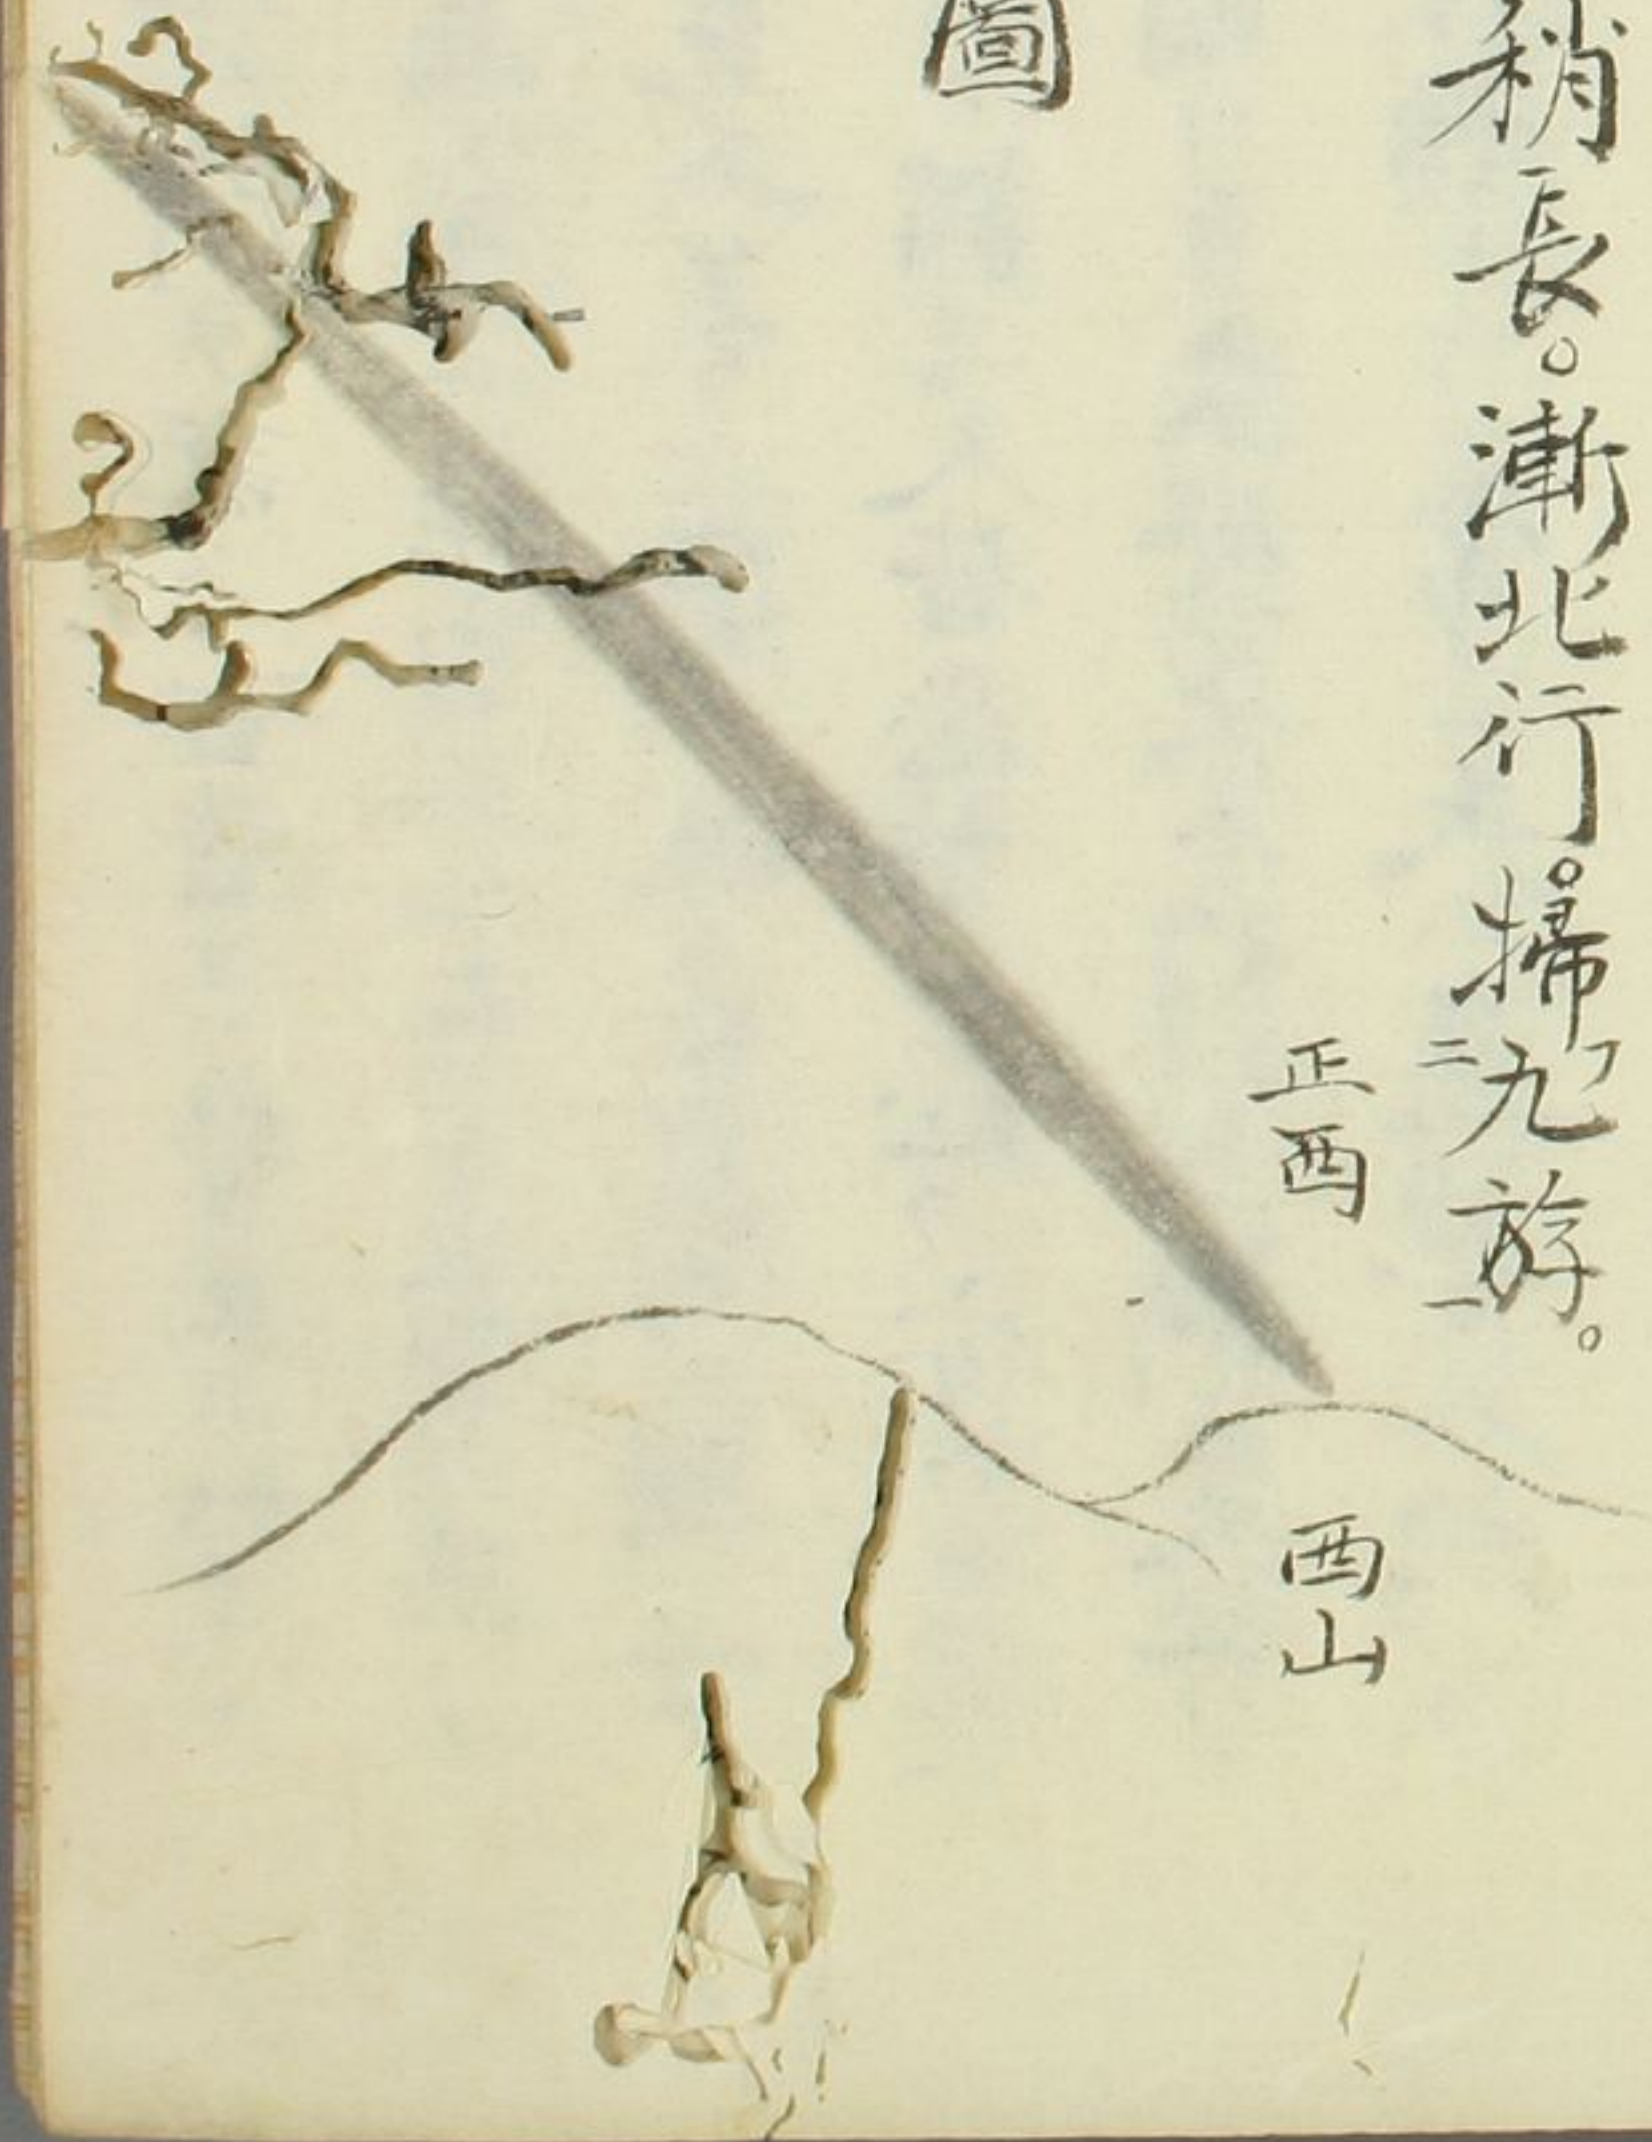 稍長。漸北行。掃フ二九斿一。
正西
西山
圖